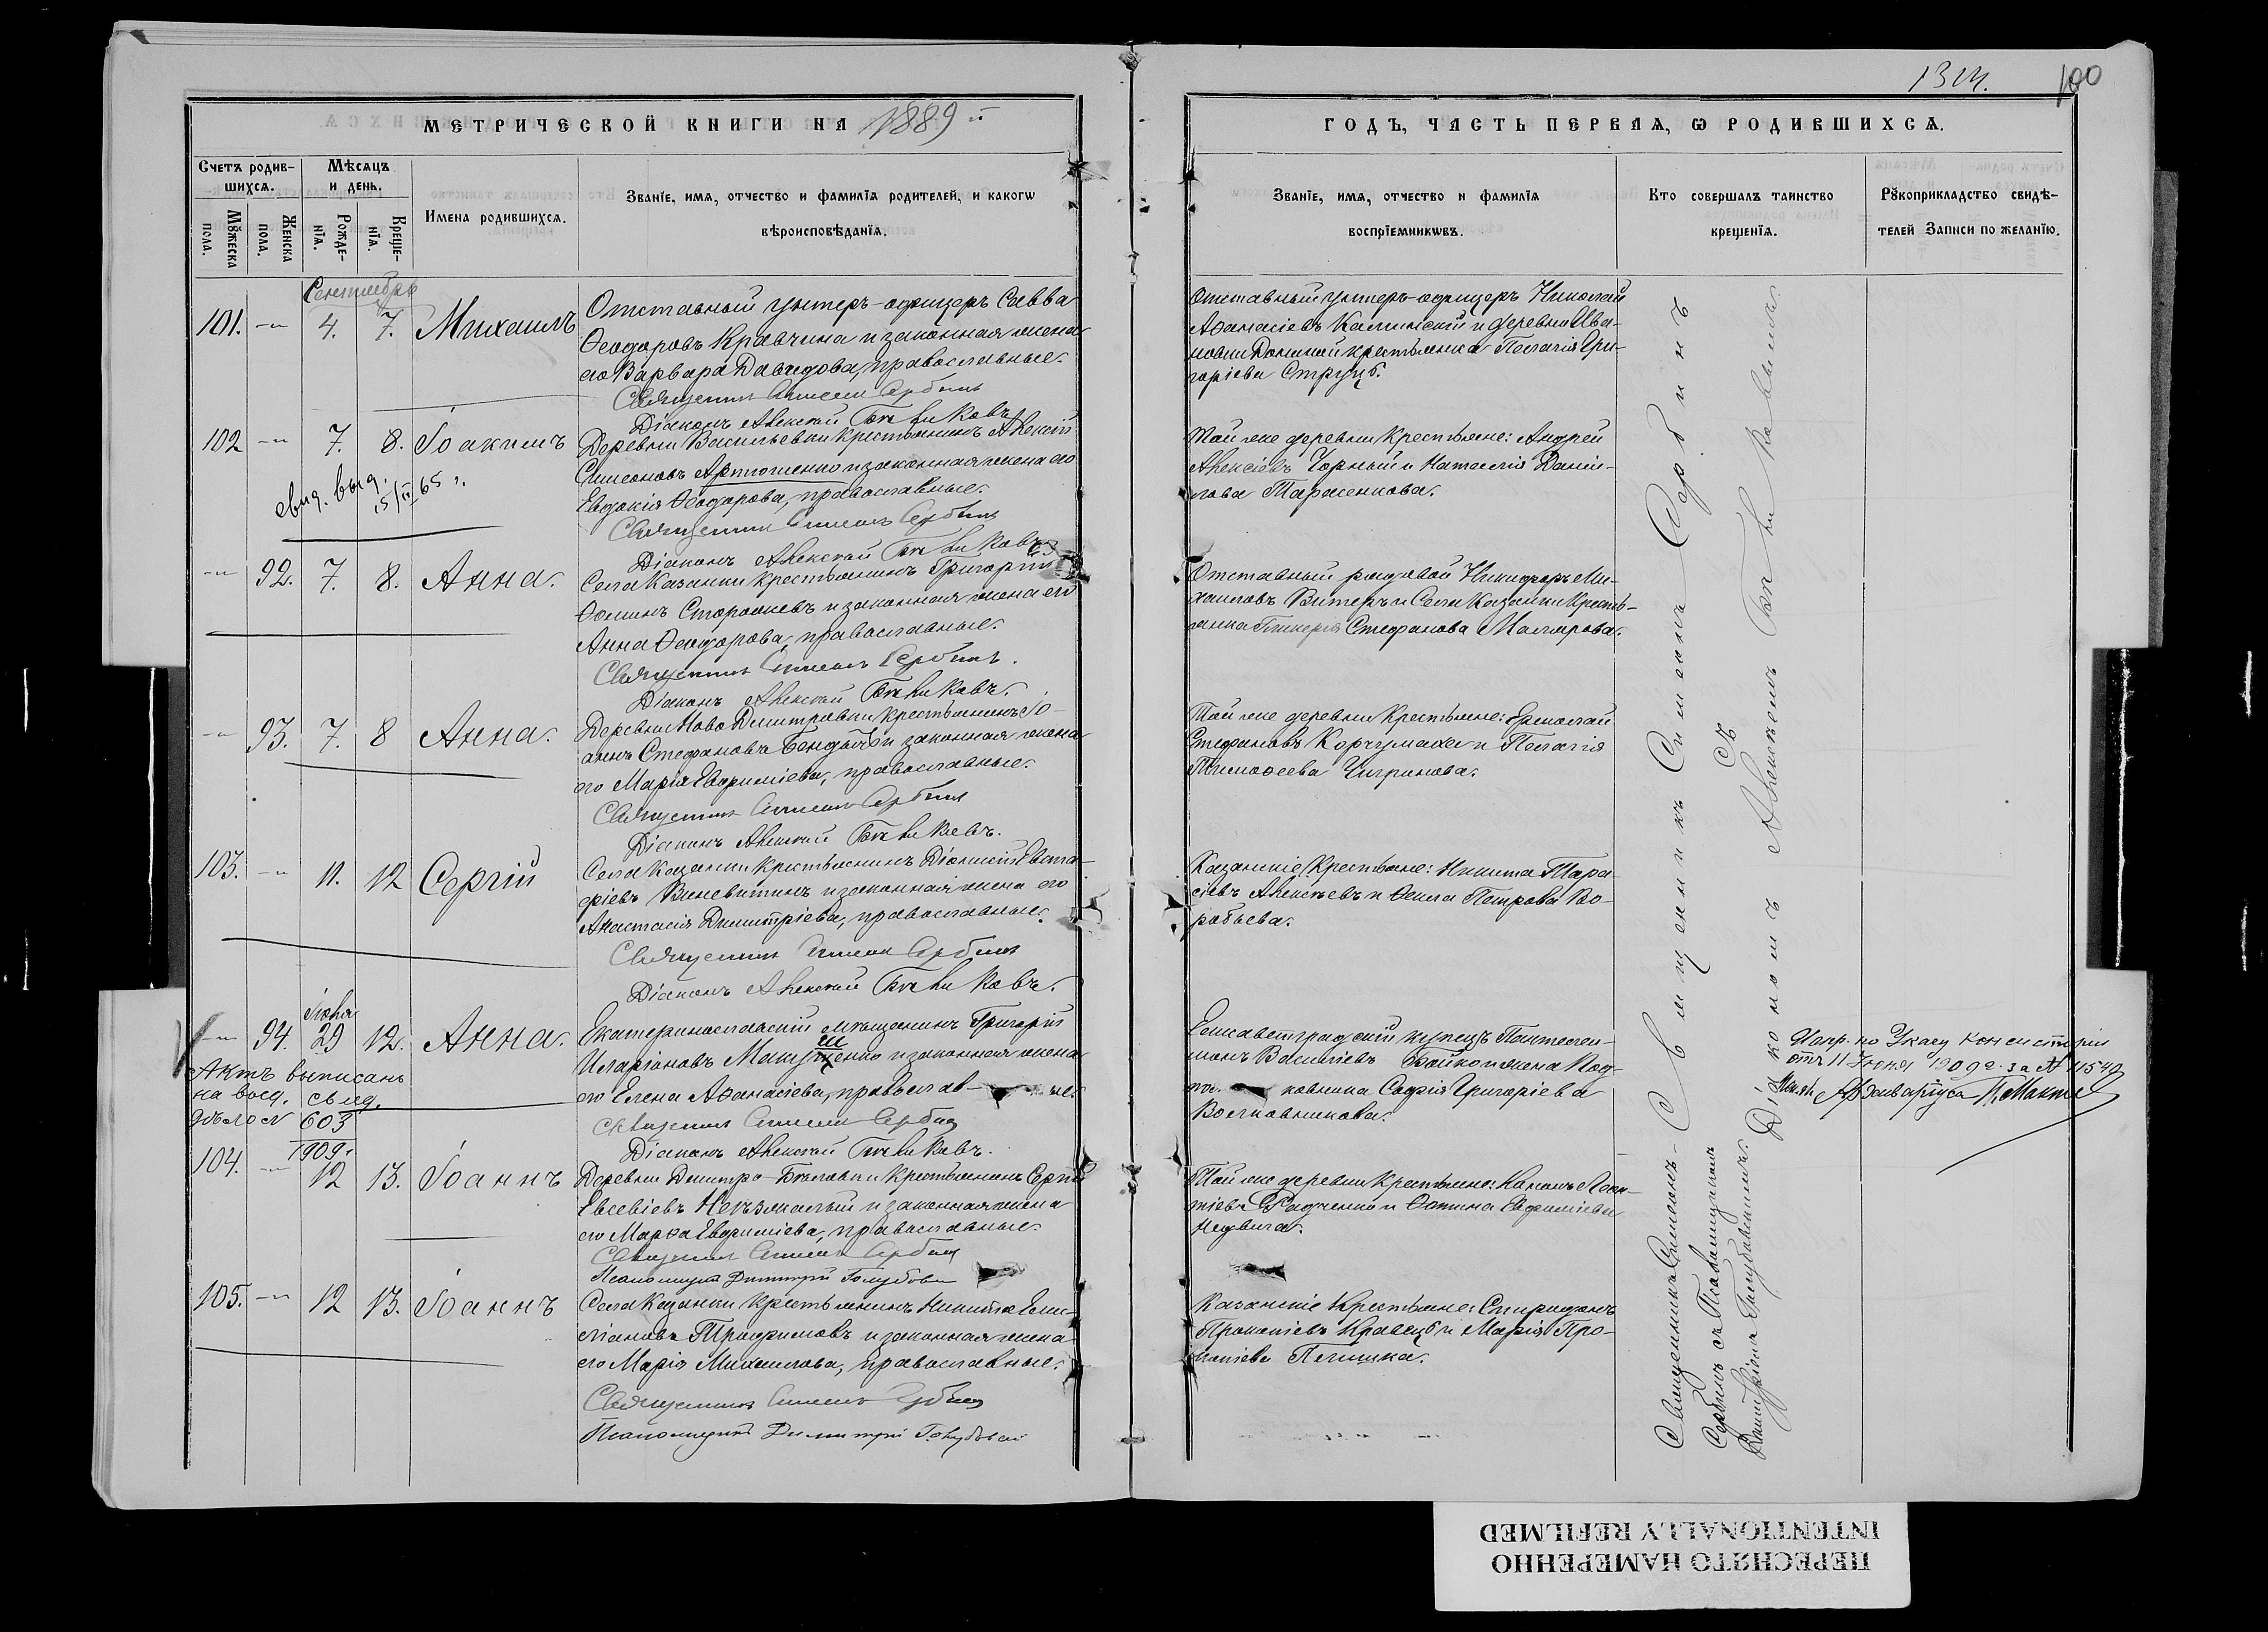 13 131.
100
МЕТРИЧЕСКОЙ КНИГИ НА 1889й
ГОДЪ, ЧАСТЬ ПЕРВАѦ, Ѡ РОДИВШИХСѦ.
Счетъ родив-
шихсѧ.
Мѣсѧцъ
и день.
Мꙋжеска
пола.
Женска
пола.
Рожде-
нїѧ.
Креще-
нїѧ.
Имена родившихсѧ.
Званїе, имѧ, отчество и фамилїѧ родителей, и какогѡ
вѣроисповѣданїѧ.
Званїе, имѧ, отчество и фамилїѧ
воспрїемникѡвъ.
Кто совершалъ таинство
крещенїѧ.
Рꙋкоприкладство свидѣ-
телей Записи по желанїю.
Сентябрь
101. -"- 4. 7. Михаилъ
Отставный унтеръ-офицеръ Савва
Ѳеодоровъ Кравчина и законная жена
его Варвара Давидова, православные.
Священникъ Симеонъ Сербинъ
Діаконъ Алексѣй Бѣликовъ
Отставный унтеръ-офицеръ Николай
Аѳанасіевъ Калинскій и деревни Ива-
новки Дониной крестьянка Пелагія Гри-
горіева Струцъ.
102 -"- 7. 8. Іоакимъ
свид. выд.
15/II 65 г.
Деревни Васильевки крестьянинъ Алексій
Симеоновъ Артюшенко и законная жена его
Евдокія Ѳеодорова, православные.
Священникъ Симеонъ Сербинъ
Діаконъ Алексѣй Бѣликовъ
Той же деревни крестьяне: Андрей
Алексіевъ Чорный и Наталія Даніи-
лова Тарасенкова.
-"- 92. 7. 8. Анна.
Села Казанки крестьянинъ Григорій
Ѳоминъ и законная жена его
Анна Ѳеодорова, православные.
Священникъ Симеонъ Сербинъ.
Діаконъ Алексѣй Бѣликовъ.
Отставный рядовой Никифоръ Ми-
хаиловъ Витеръ и Села Казанки кресть-
янка Гликерія Стефанова Малярова.
-"- 93. 7. 8 Анна.
Деревни Ново Димитровки крестьянинъ Іо-
аннъ Стефановъ и законная жена
его Марія Евфиміева, православные.
Священникъ Симеонъ Сербинъ
Діаконъ Алексѣй Бѣликовъ.
Той же деревни крестьяне: Ермолай
Стефановъ Корчумаха и Пелагія
Тимоѳеева Чигринова.
103. -"- 11. 12 Сергій
Села Казанки крестьянинъ Діонисій Евста-
фіевъ Виневитинъ и законная жена его
Анастасія Димитріева, православные.
Священникъ Симеонъ Сербинъ
Діаконъ Алексѣй Бѣликовъ.
Казанскіе крестьяне: Никита Тара-
сіевъ Алексѣевъ и Ѳекла Петрова Во-
робьева.
-"- 94. Іюня 29 12. Анна.
Актъ выписанъ
на выд. свид.
дѣло № 603
1909 г.
Екатеринославскій мѣщанинъ Григорій
Иларіоновъ и законная жена
его Елена Аѳанасіева, православ- ные.
Священникъ Симеонъ Сербинъ
Діаконъ Алексѣй Бѣликовъ.
Елисаветградскій купецъ Пантелеи-
монъ Василіевъ и жена Под-
пол- ковника Софія Григоріева
Волховникова.
Испр. по Указу Консисторіи
отъ 11 Іюня 1909 г. за № 11540
104. -"- 12 13. Іоаннъ
Деревни Димитро-Бѣловки крестьянинъ Сергій
Евсевіевъ Невзмалый и законная жена
его Марѳа Евфиміева, православные.
Священникъ Симеонъ Сербинъ
Псаломщикъ Димитрій Голубовъ
Той же деревни крестьяне: Кононъ Леон-
тіевъ Радченко и Фотина Евфиміева
Недвига.
105. -"- 12 13. Іоаннъ
Села Казанки крестьянинъ Никита Еми-
ліановъ Трофимовъ и законная жена
его Марія Михаилова, православные.
Священникъ Симеонъ Сербинъ
Псаломщикъ Димитрій Голубовъ
Казанскіе крестьяне: Спиридонъ
Прокопіевъ Кравецъ и Марія Про-
копіева Пятишка.
Священникъ Симеонъ Сербинъ
съ
Діакономъ Алексіемъ Бѣликовымъ.
Священникъ Симеонъ
Сербинъ съ Псаломщикомъ
Димитріемъ Голубовскимъ.
ПЕРЕСНЯТО НАМЕРЕННО
INTENTIONALLY REFILMED